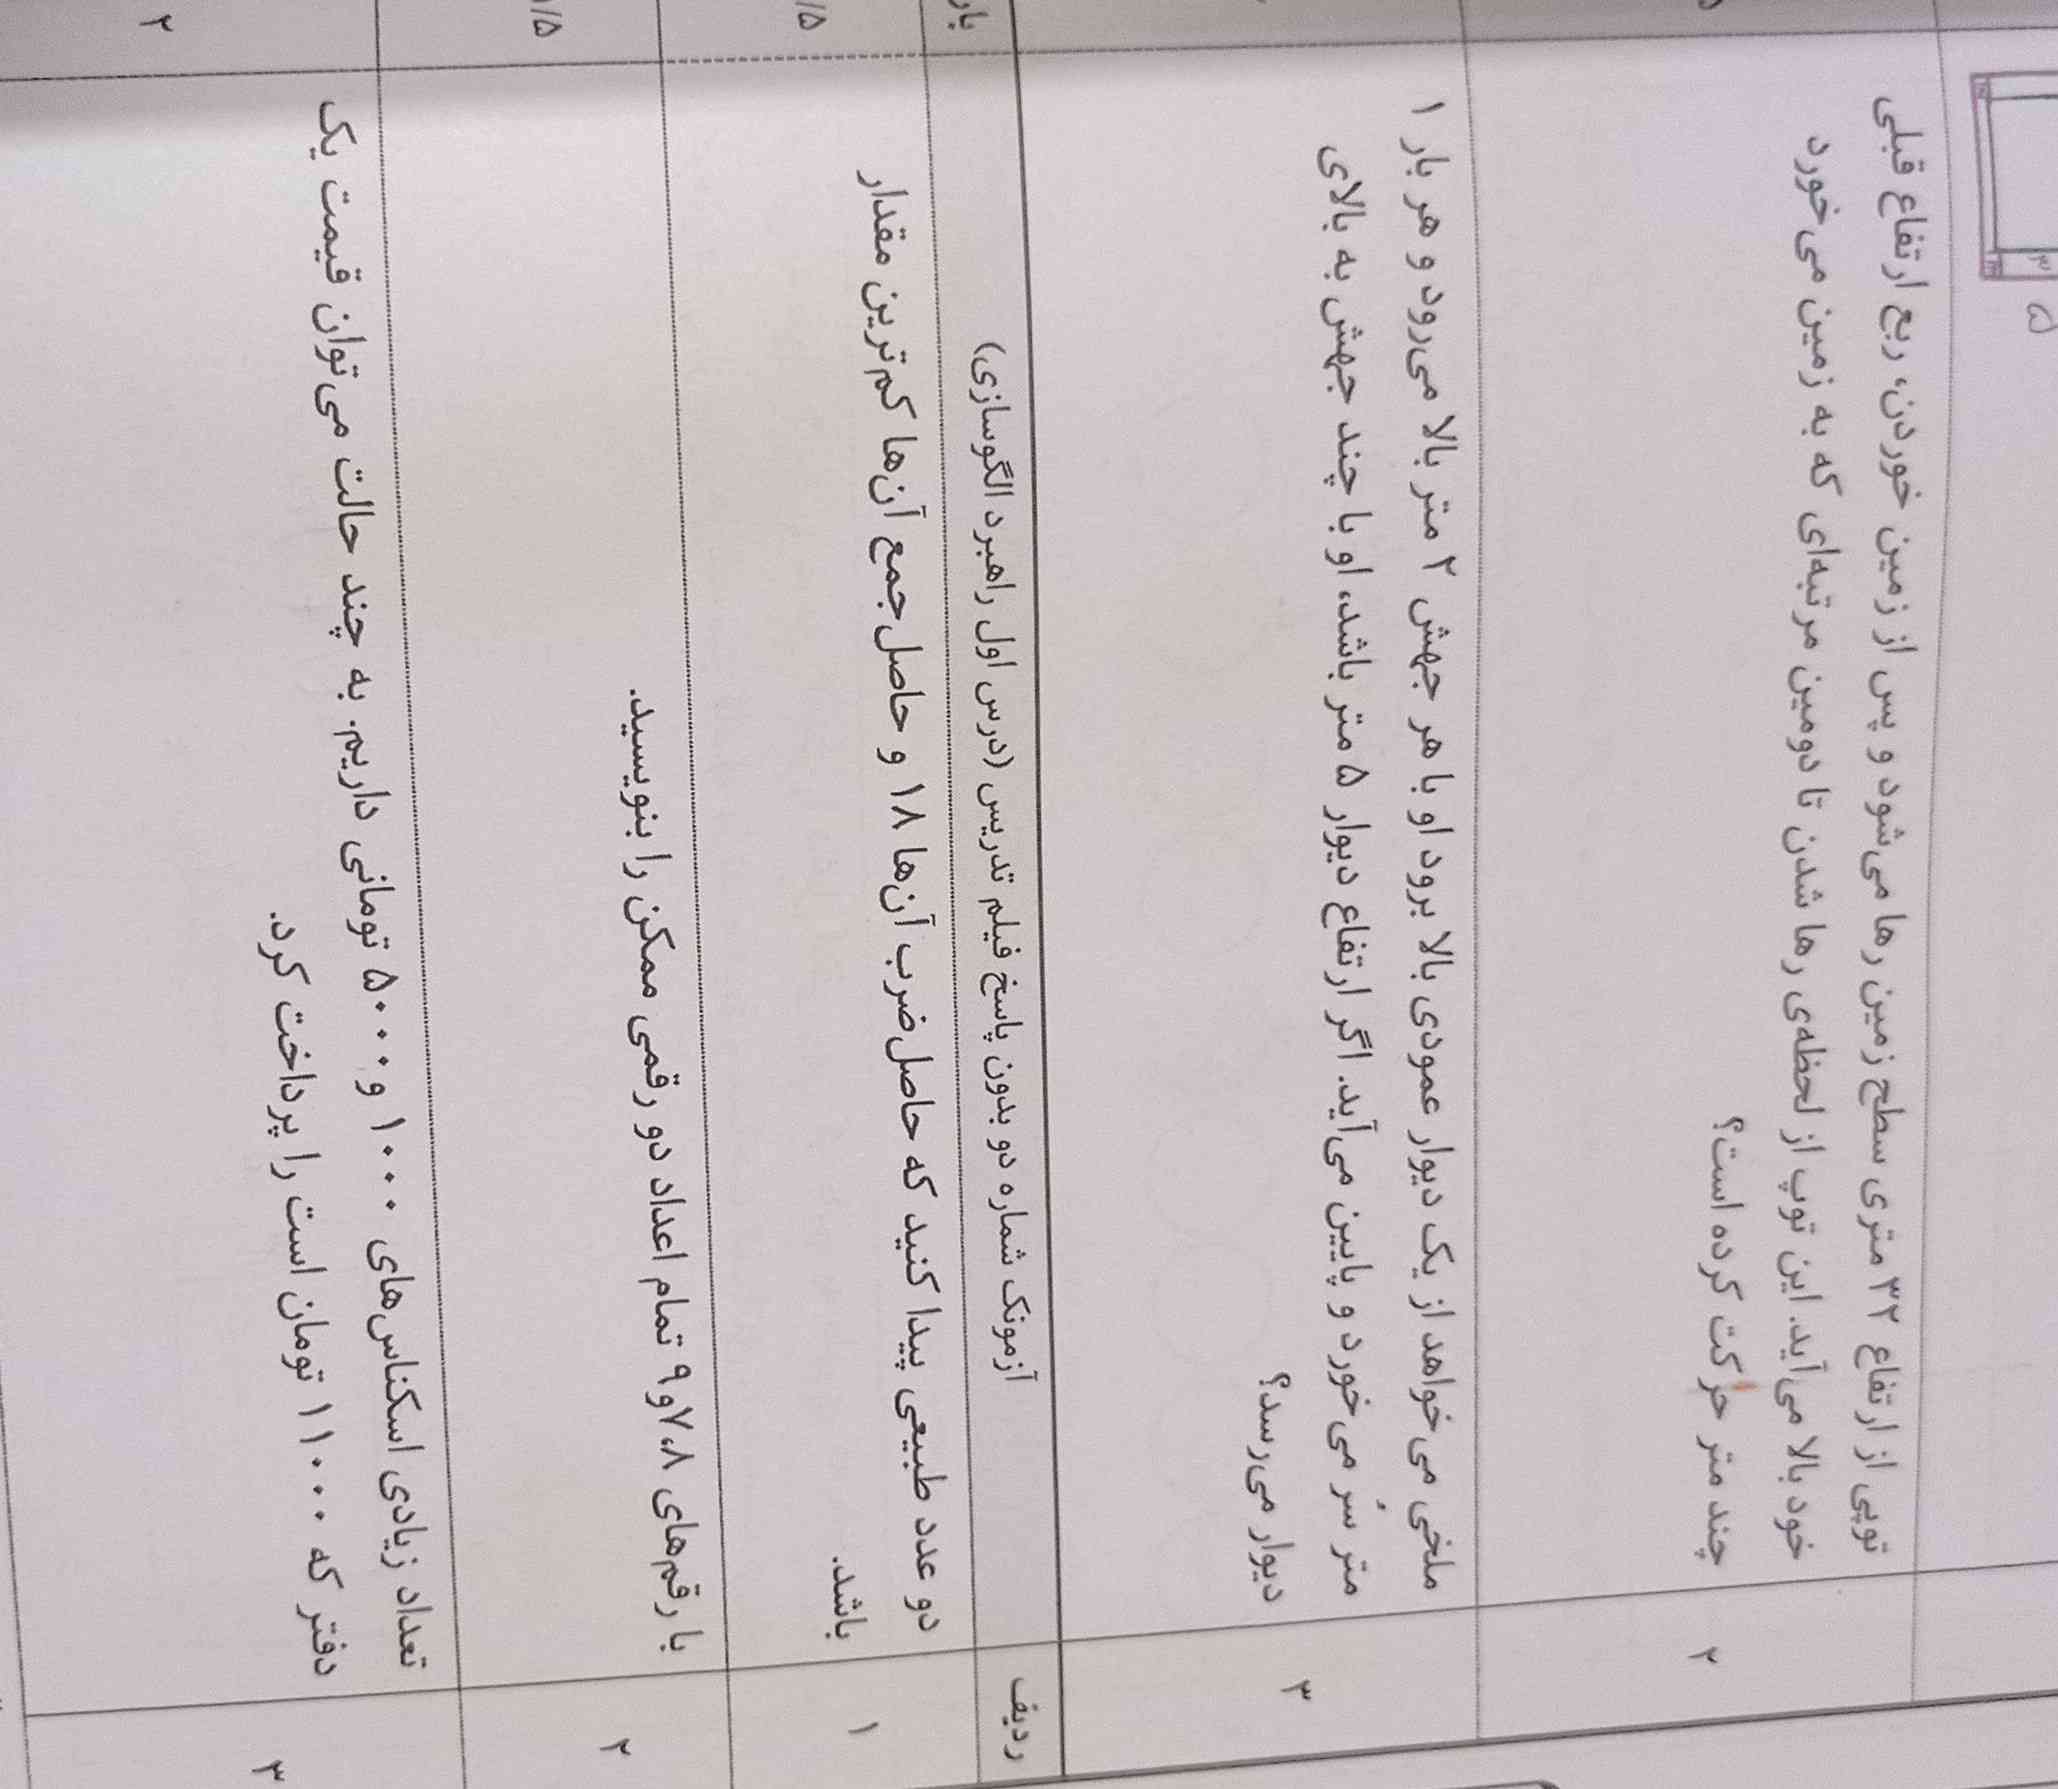 ۵
۳
توپی از ارتفاع ۳۲ متری سطح زمین رها می‌شود و پس از زمین خوردن، ربع ارتفاع قبلی
خود بالا می‌آید. این توپ از لحظه‌ی رها شدن تا دومین مرتبه‌ای که به زمین می‌خورد
چند متر حرکت کرده است؟
۲
ملخی می‌خواهد از یک دیوار عمودی بالا برود او با هر جهش ۲ متر بالا می‌رود و هر بار ۱
متر سُر می‌خورد و پایین می‌آید. اگر ارتفاع دیوار ۵ متر باشد، او با چند جهش به بالای
دیوار می‌رسد؟
۳
ردیف
آزمونک شماره دو بدون پاسخ فیلم تدریس (درس اول راهبرد الگوسازی)
بار
۱
دو عدد طبیعی پیدا کنید که حاصل‌ضرب آن‌ها ۱۸ و حاصل‌جمع آن‌ها کم‌ترین مقدار
باشد.
/۵
۲
با رقم‌های ۷،۸ و ۹ تمام اعداد دو رقمی ممکن را بنویسید.
۱/۵
۳
تعداد زیادی اسکناس‌های ۱۰۰۰ و ۵۰۰۰ تومانی داریم. به چند حالت می‌توان قیمت یک
دفتر که ۱۱۰۰۰ تومان است را پرداخت کرد.
۲